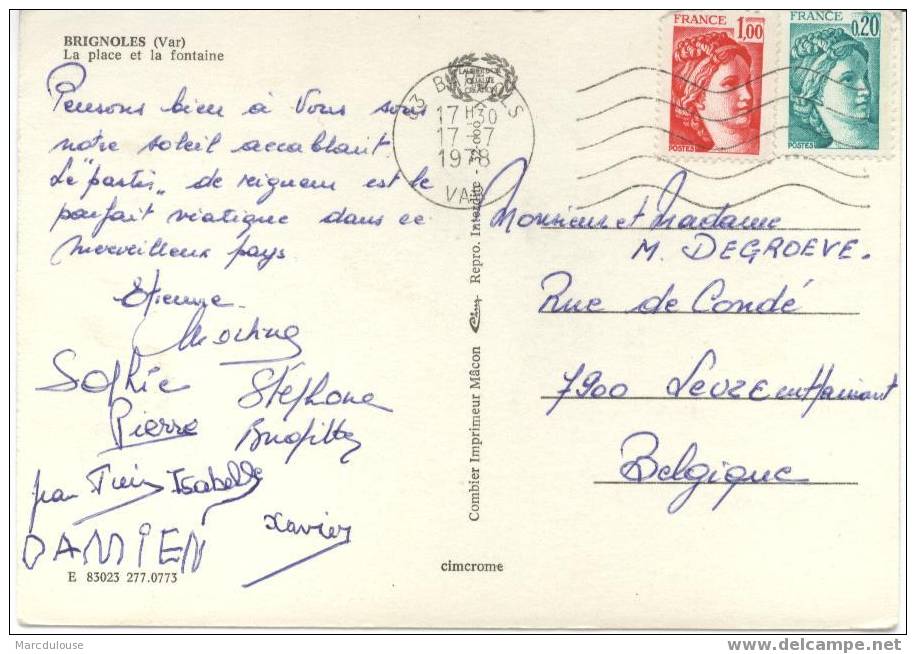 BRIGNOLES (Var)
La place et la fontaine
Pensons bien à Vous sous
notre soleil accablant.
Le "pastis" de rigueur est le
parfait viatique dans ce
merveilleux pays
Etienne
Martine
Sophie Stéphane
Pierre Brigitte
Jean Isabelle
Xavier
DAMIEN
E 83023 277.0773
cimcrome
Combier Imprimeur Mâcon Cim Repro. Interdite
83 BRIGNOLES
17 H 30
17-7
1978
VAR
FRANCE
1,00
POSTES
FRANCE
0,20
POSTES
Monsieur et Madame
M. DEGROEVE.
Rue de Condé
7900 Leuze en Hainaut
Belgique
Marcdulouse
www.delcampe.net